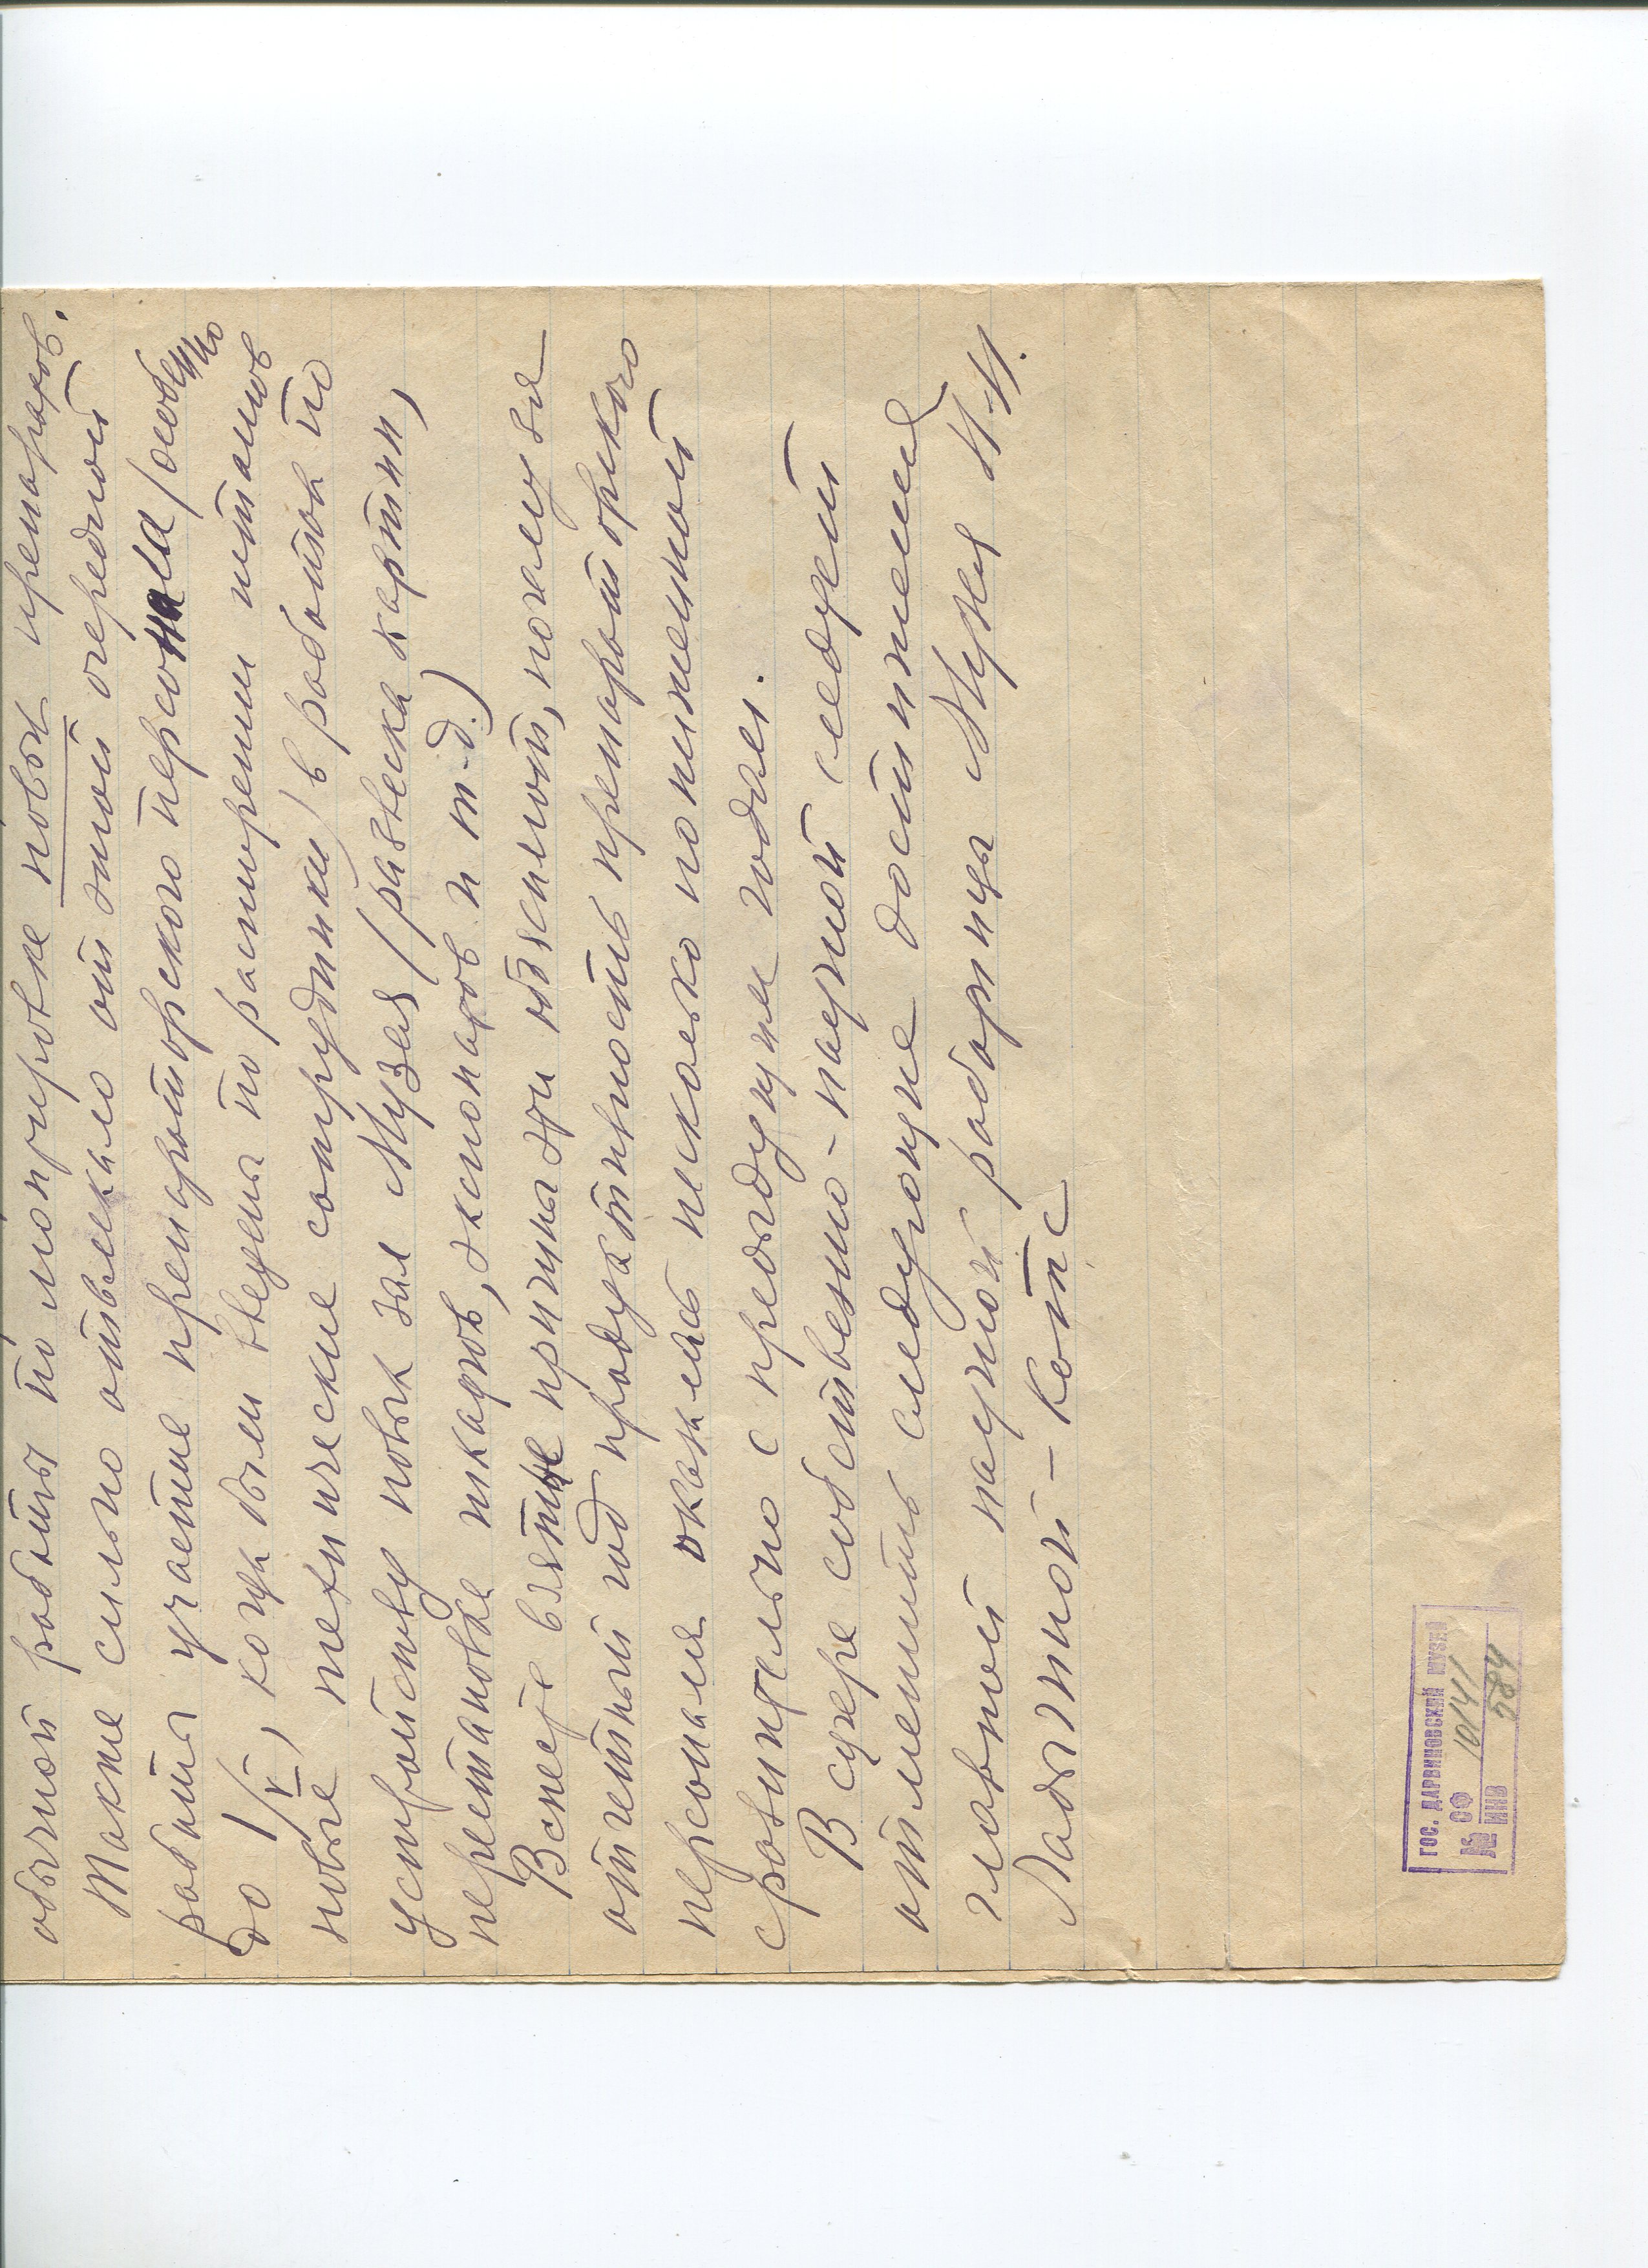 обычной работы по монтировке новых препаратов.
Также сильно отвлекало от этой очередной
работы участие препараторского персонала (особенно
до 1/V, когда были введены по расширении штатов
новые технические сотрудники) в работах по
устройству новых зал Музея (развеска картин,
перестановке шкафов, экспонатов и т.д.)
Все эти взятые причины объясняют, почему за
отчетный год продуктивность препараторского
персонала оказалась несколько пониженной
сравнительно с предыдущим годом.
В сфере собственно-научной следует
отметить следующие достижения
главной научной работницы Музея Н.Н.
Ладыгиной-Котс
ГОС. ДАРВИНОВСКИЙ МУЗЕЙ
№ ОФ 10141
ИНВ 584